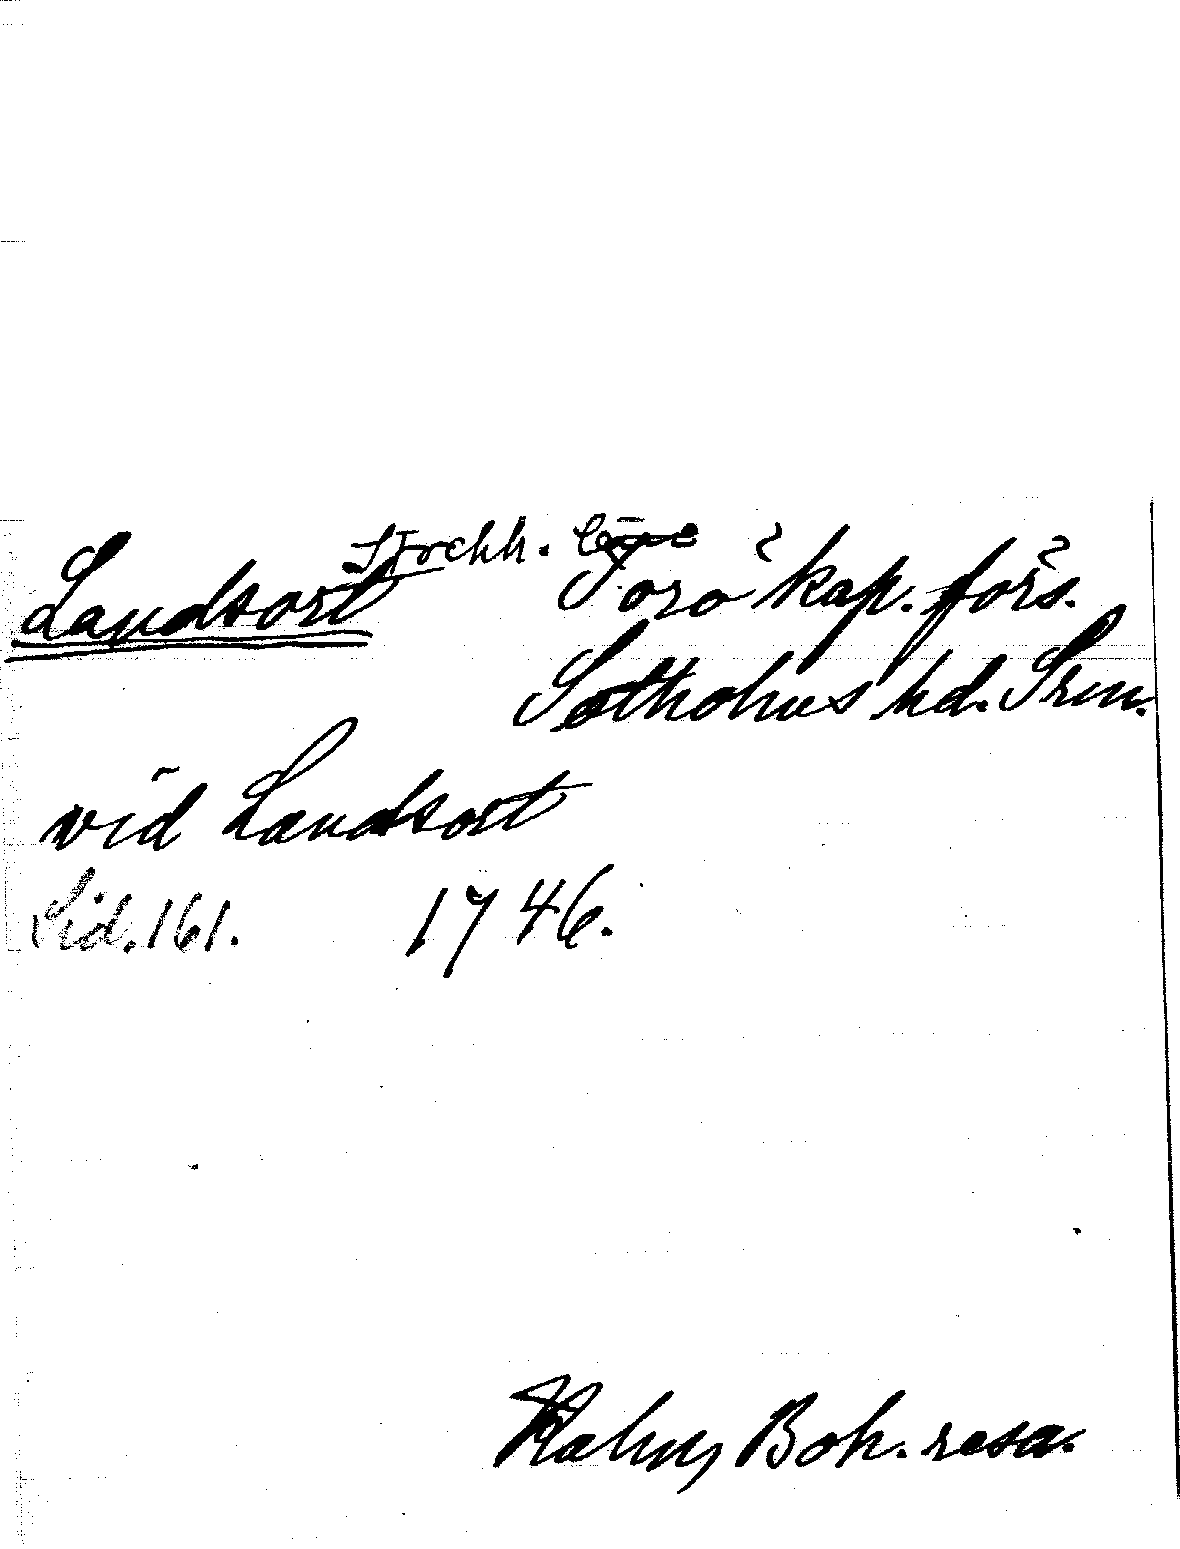 Stockh.
Landsort Torö kap. förs.
Sotholms hd. Srm.
vid Landsort
Sid. 161. 1746.
Kalm, Boh. resa.